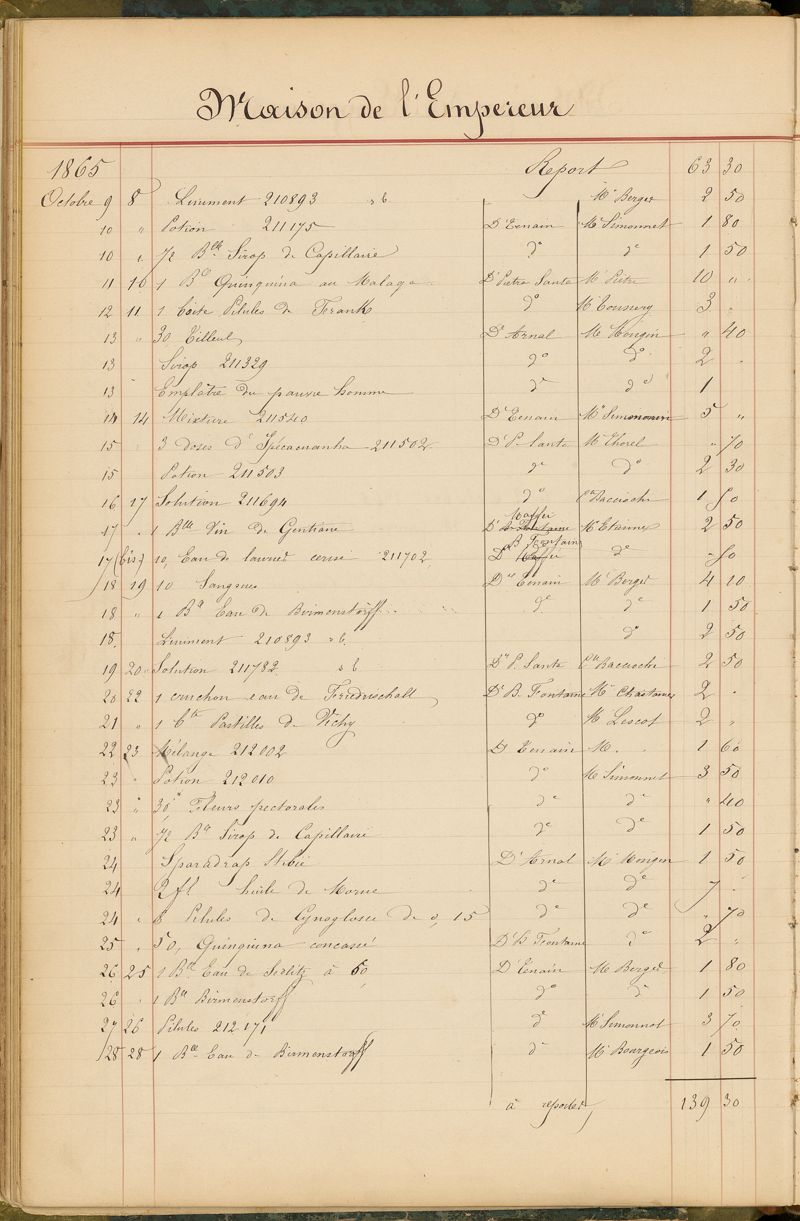 Maison de l'Empereur
1865 Report 63 30
Octobre 9 8 Liniment 210893 Mr Berger 2 50
10 " Potion 211175 Dr Evenain Mr Simonnet 1 80
10 " 1/2 Blle Sirop de Capillaire do do 1 50
11 10 1 Blle Quinquina au Malaga Dr Pietra Santa Mr Pietri 10 "
12 11 1 boîte Pilules de Frank do Mr 3 "
13 " 30 Tilleul Dr Arnal Mr Mongin " 40
13 Sirop 211329 do do 2 "
13 Emplâtre du pauvre homme do do 1
14 14 Mixture 211540 Dr Evenain Mr 5 "
15 3 doses d'Ipécacuanha 211502 Dr P. Santa Mr Thorel " 70
15 Potion 211503 do do 2 30
16 17 Solution 211694 do Baciochi 1 50
17 " 1 Blle Vin de Gentiane Dr Maffei Mr Etienne 2 50
17 (bis) 10, Eau de laurier cerise 211702 Dr B. Fontaine do - 50
18 19 10 Sangsues Dr Evenain Mr Berger 4 10
18 " 1 Blle Eau de Birmenstorff do do 1 50
18 Liniment 210893 do 2 50
19 20 Solution 211782 Dr P. Santa Baciochi 2 50
20 22 1 cruchon eau de Friedrischall Dr B. Fontaine Mr 2 "
21 " 1 bte Pastilles de Vichy do Mr Lescot 2 "
22 23 Mélange 212002 Dr Evenain M. . 1 60
23 " Potion 212010 do Mr Simonnet 3 50
23 " 30, Fleurs pectorales do do " 40
23 " 1/2 Blle Sirop de Capillaire do do 1 50
24 Sparadrap Stibié Dr Arnal Mr Mongin 1 50
24 2 fl huile de Morue do do 7 -
24 " 8 Pilules de Cynoglosse de 0,15 do do " 70
25 " 50, Quinquina concassé Dr B. Fontaine do 2 "
26 25 1 Blle Eau de Sedlitz à 50, Dr Evenain Mr Berger 1 80
26 " 1 Blle Birmenstorff do do 1 50
27 26 Pilules 212171 do Mr Simonnot 3 70
28 28 1 Blle Eau de Birmenstorff do Mr Bourgeois 1 50
à reporter 139 30